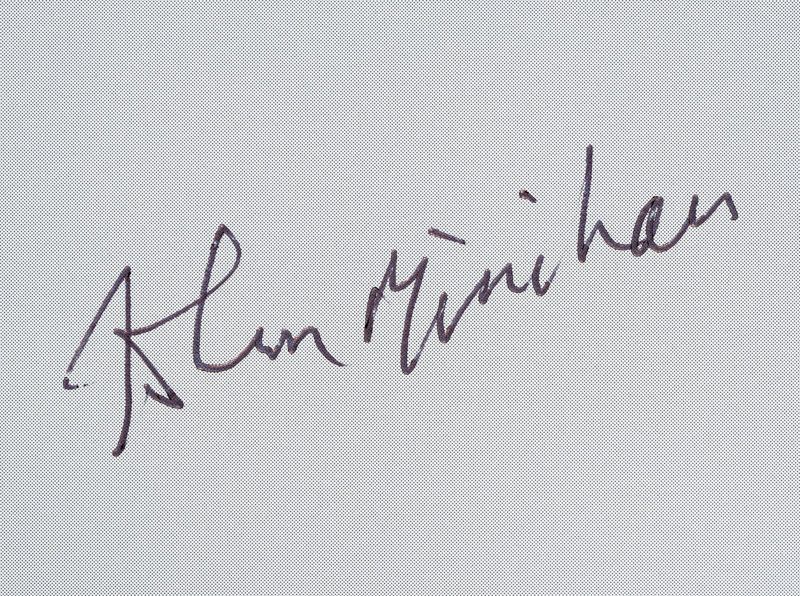 Alan Minihan